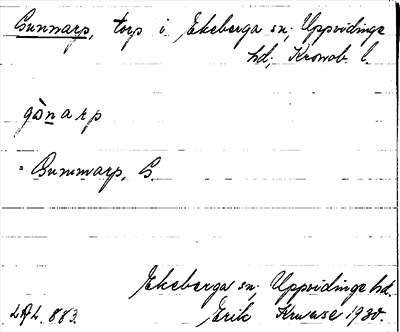 Gunnarp, torp i Ekeberga sn; Uppvidinge
hd; Kronob. l.
gònarp
= Bunnvarp, G.
Ekeberga sn; Uppvidinge hd.
LAL. 883. Erik Kruuse 1930.